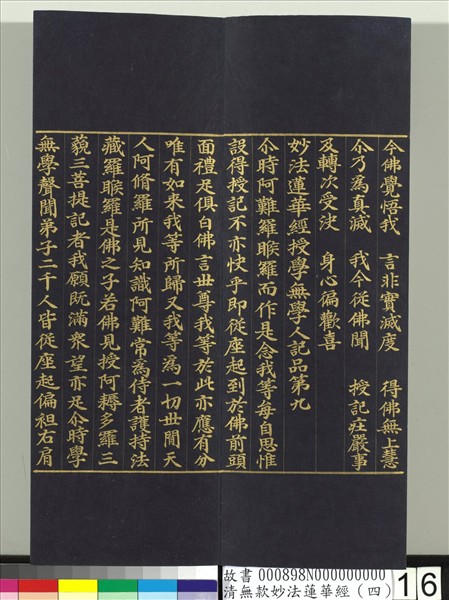 今佛覺悟我　言非實滅度　得佛無上慧
尒乃為真滅　我今從佛聞　授記荘嚴事
及轉次受决　身心徧歡喜
妙法蓮華經授學無學人記品第九
尒時阿難羅睺羅而作是念我等每自思惟
設得授記不亦快乎即從座起到於佛前頭
面禮足俱白佛言世尊我等於此亦應有分
唯有如來我等所歸又我等為一切世間天
人阿脩羅所見知識阿難常為侍者護持法
藏羅睺羅是佛之子若佛見授阿耨多羅三
藐三菩提記者我願既滿衆望亦足尒時學
無學聲聞弟子二千人皆從座起偏袒右肩
故書 000898N000000000
清無款妙法蓮華經（四）
16